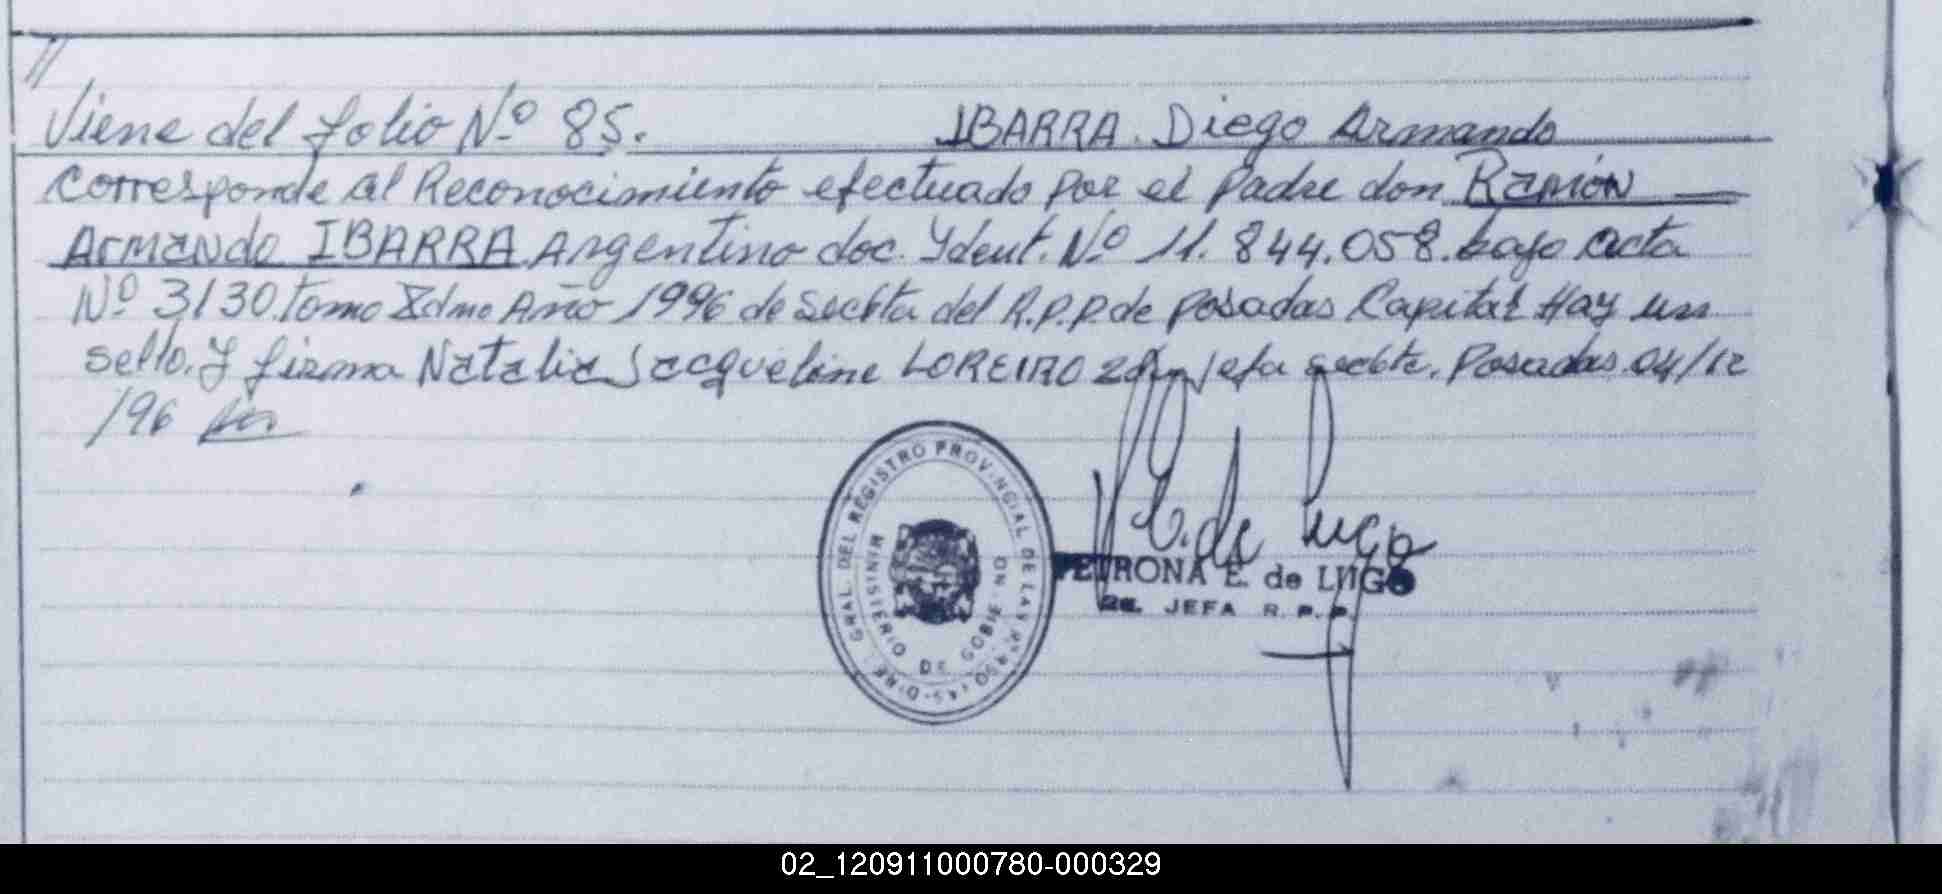 //
Viene del folio Nº 85. IBARRA. Diego Armando
Corresponde al Reconocimiento efectuado por el Padre don Ramón
Armando IBARRA Argentino doc. Ydent. Nº 11.844.058. bajo acta
Nº 3130 tomo Año 1996 de Seccta del R.P.P. de Posadas Capital Hay un
sello. y firma Natalia Jacqueline LOREIRO 2da jefa Seccta. Posadas 04/12
/96
DIRE. GRAL. DEL REGISTRO PROVINCIAL DE LAS PERSONAS
MINISTERIO DE GOBIERNO
E. de Lugo
PETRONA E. de LUGO
2da. JEFA R. P. P.
02_120911000780-000329